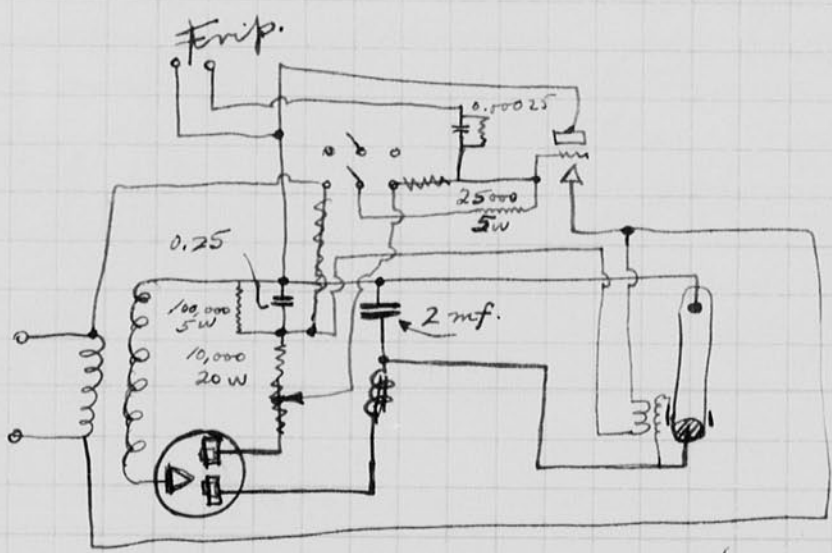 Trip.
0.00025
25000
5W
0.25
100,000
5W
2 mf.
10,000
20W